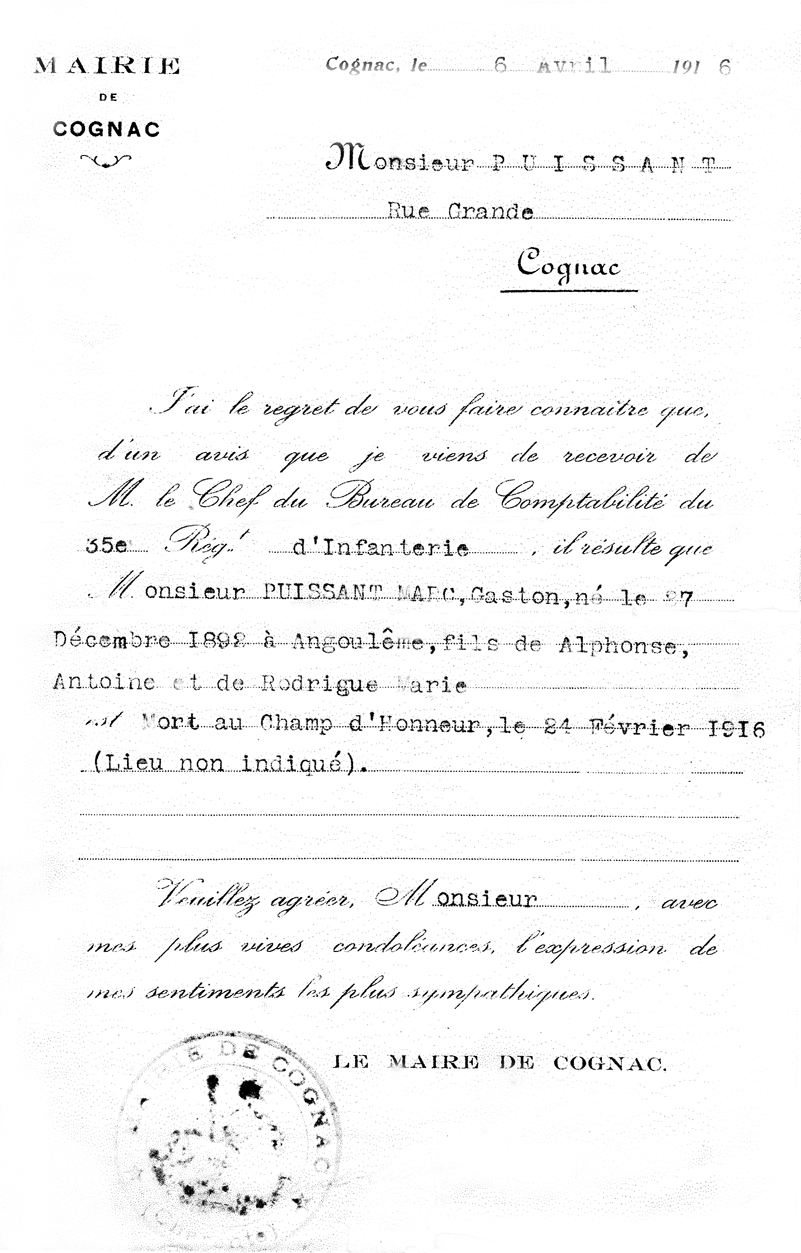 MAIRIE
DE
COGNAC
Cognac, le 6 Avril 1916
Monsieur PUISSANT
Rue Grande
Cognac
J'ai le regret de vous faire connaître que,
d'un avis que je viens de recevoir de
M. le Chef du Bureau de Comptabilité du
35e Rég.t d'Infanterie, il résulte que
Monsieur PUISSANT MARC,Gaston,né le 27
Décembre 1892 à Angoulême,fils de Alphonse,
Antoine et de Rodrigue Marie
est Mort au Champ d'Honneur,le 24 Février 1916
(Lieu non indiqué).
Veuillez agréer, Monsieur, avec
mes plus vives condoléances, l'expression de
mes sentiments les plus sympathiques.
LE MAIRE DE COGNAC.
MAIRIE DE COGNAC
(Charente)